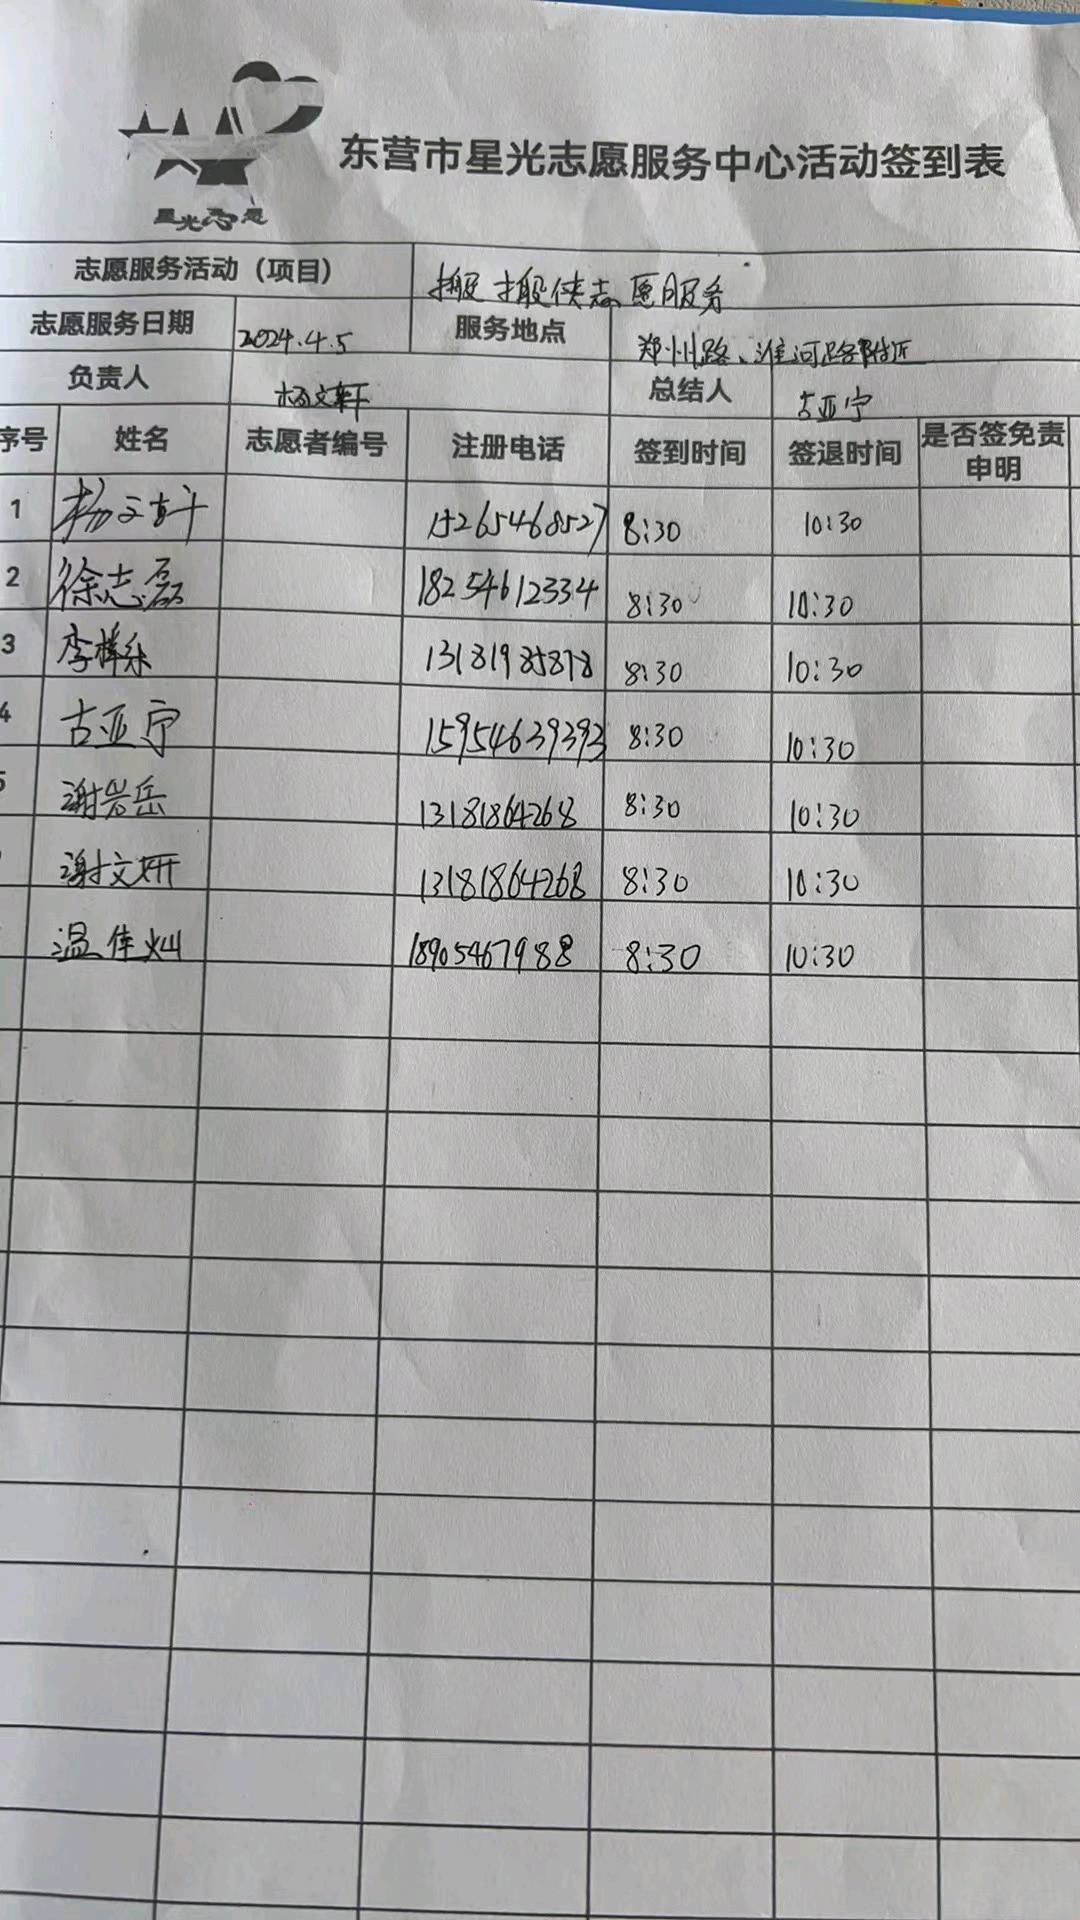 东营市星光志愿服务中心活动签到表
星光志愿
志愿服务活动（项目） 搬搬侠志愿服务
志愿服务日期 2024.4.5 服务地点 郑州路、淮河路附近
负责人 杨文轩 总结人 古亚宁
序号 姓名 志愿者编号 注册电话 签到时间 签退时间 是否签免责申明
1 杨文轩 15265468527 8:30 10:30
2 徐志磊 18254612334 8:30 10:30
3 李 13181985878 8:30 10:30
4 古亚宁 15954639393 8:30 10:30
5 谢岩岳 13181864268 8:30 10:30
谢文妍 13181864268 8:30 10:30
温佳灿 18905467988 8:30 10:30